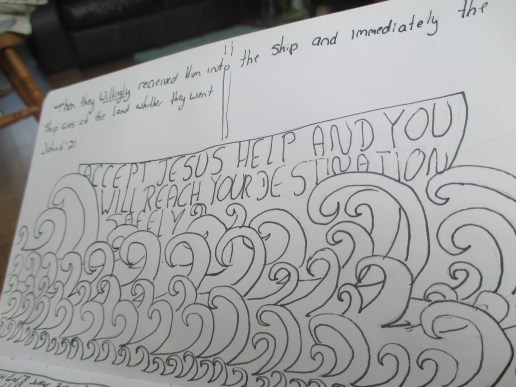 Then they willingly received Him into the ship and immediately the
ship was at the land whither they went
John 6:21
ACCEPT JESUS HELP AND YOU
WILL REACH YOUR DESTINATION
SAFELY